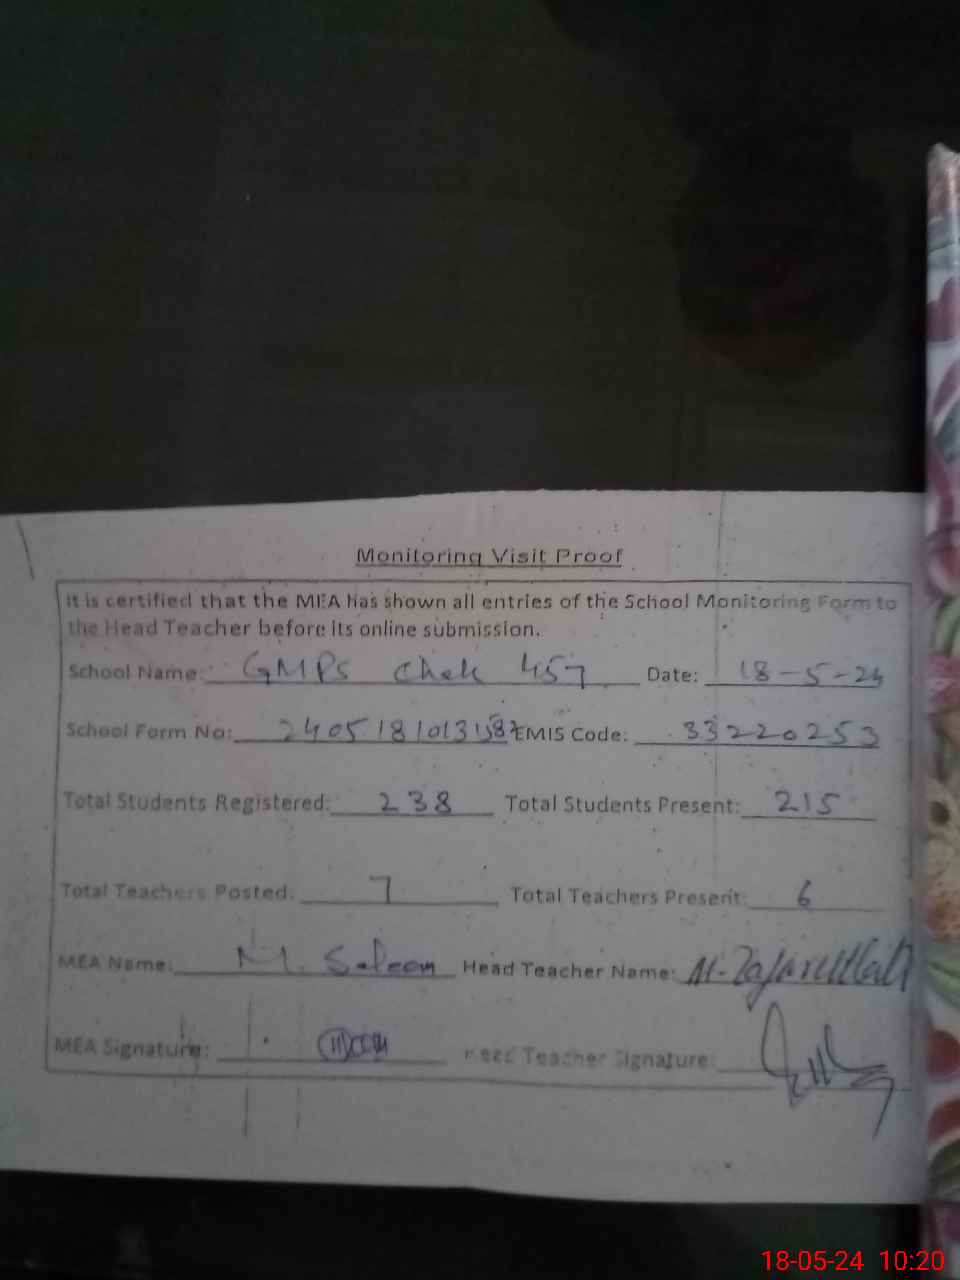 Monitoring Visit Proof
It is certified that the MEA has shown all entries of the School Monitoring Form to
the Head Teacher before its online submission.
School Name: GMPS Chak 457 Date: 18-5-24
School Form No: EMIS Code: 33220253
Total Students Registered: 238 Total Students Present: 215
Total Teachers Posted: 7 Total Teachers Present: 6
MEA Name: M. Saleem Head Teacher Name: M.
MEA Signature: Head Teacher Signature:
18-05-24 10:20